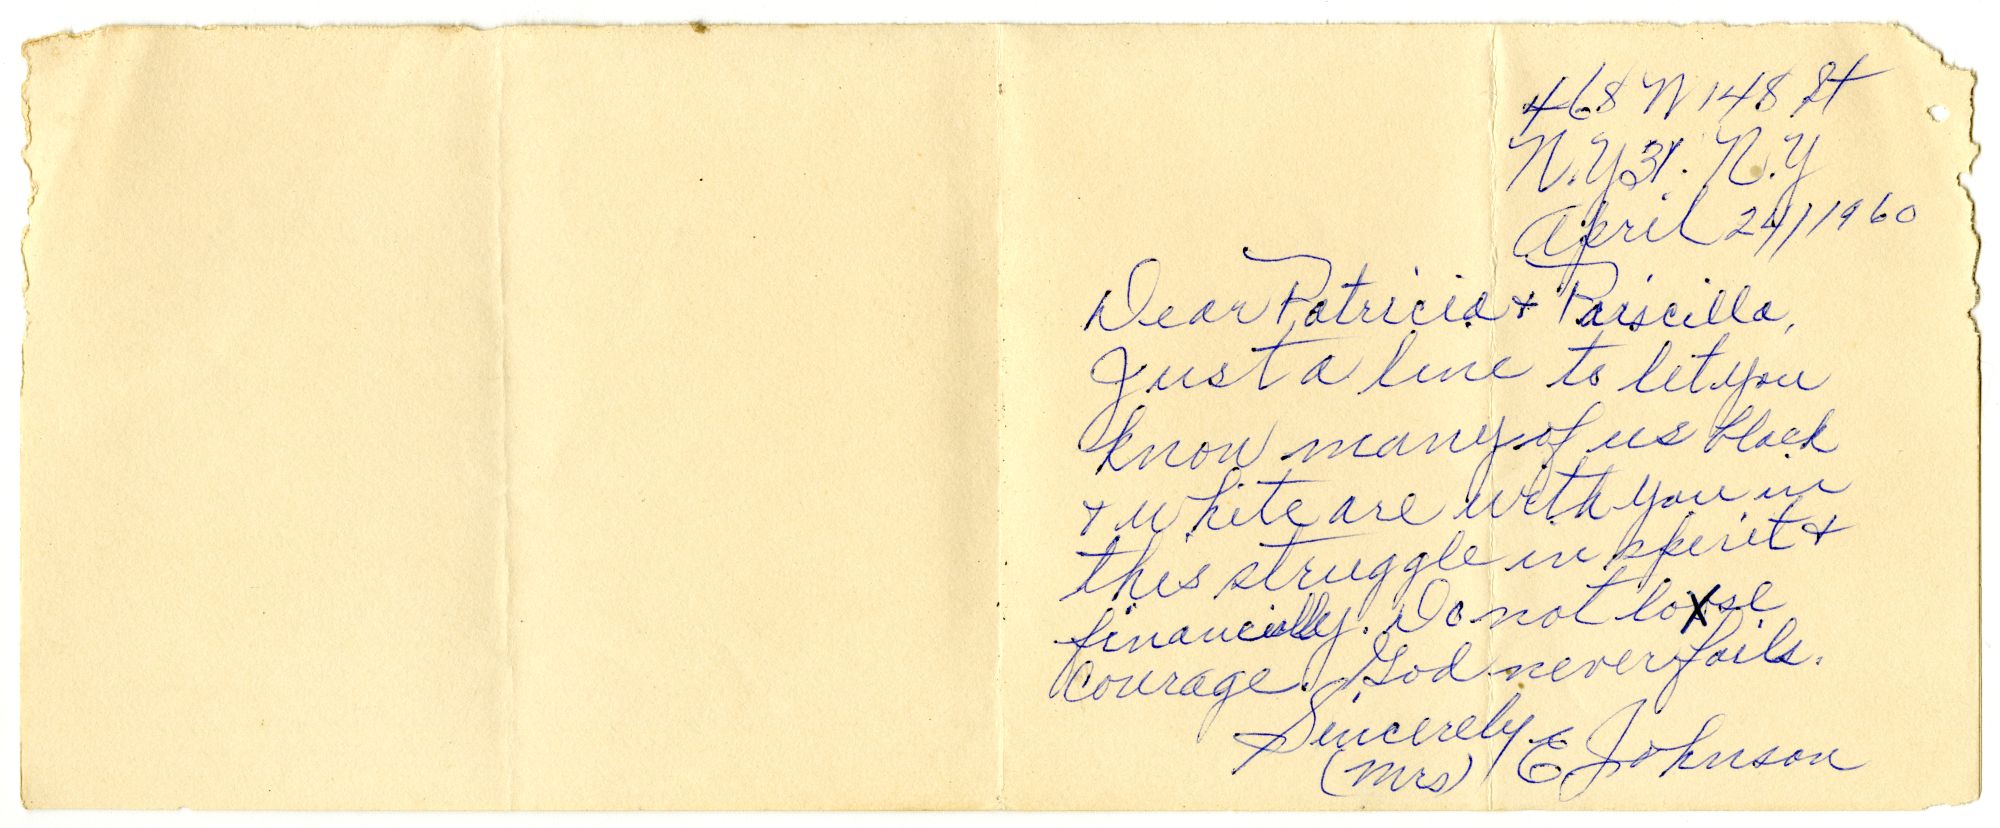 468 W 148 St
N.Y 31. N.Y
April 24/1960
Dear Patricia & Pariscilla,
Just a line to let you
know many of us black
& white are with you in
this struggle in spirit &
financially. Do not lose
courage. God never fails.
Sincerely
(Mrs) E Johnson